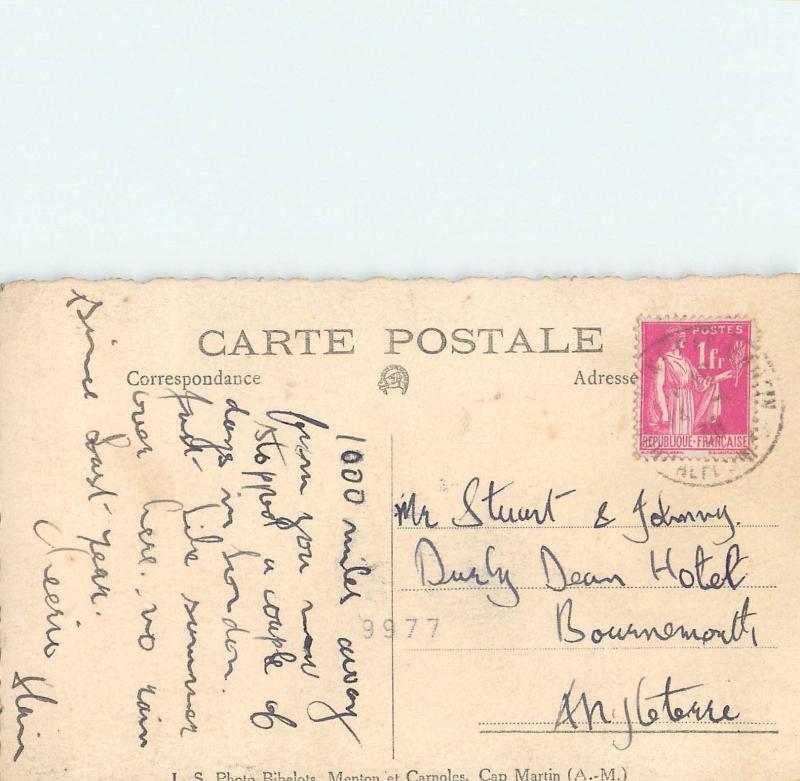 CARTE POSTALE
Correspondance
Adresse
POSTES
1fr
REPUBLIQUE-FRANÇAISE
1000 miles away
from you now
stopped a couple of
days in London.
Just like summer
over here. no rain
since last year.
Cheerio
Mr Stuart & Johnny.
Durly Dean Hotel
Bournemouth
Angleterre
9977
L. S. Photo Bibelots, Menton et Carnoles, Cap Martin (A.-M.)